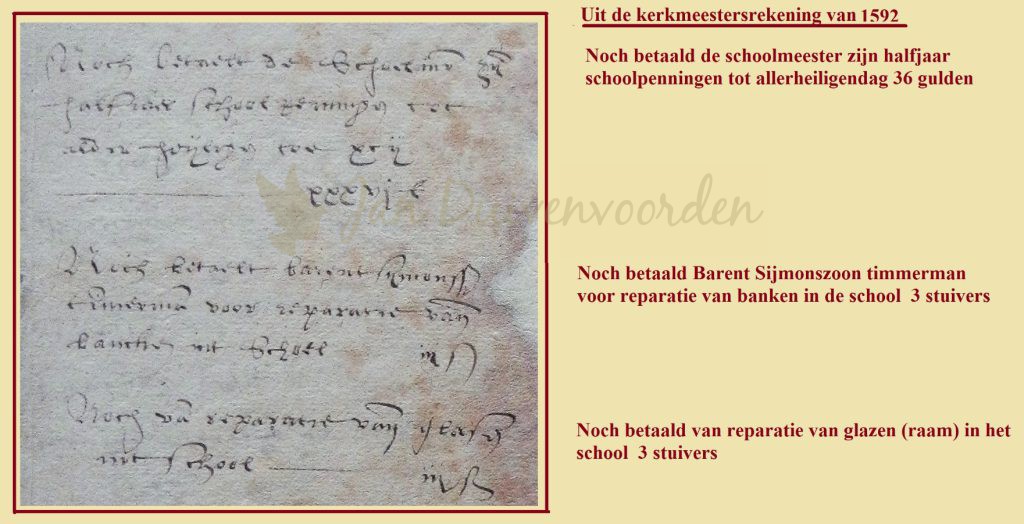 Uit de kerkmeestersrekening van 1592
Noch betaald de schoolmeester zijn halfjaar
schoolpenningen tot allerheiligendag 36 gulden
Noch betaelt de Schoelmr zijn
halfiaer school penninge tot
tot xcij
xxxvj £
Jan Duivenvoorden
Noch betaelt barent symonss
timerma voor reparatie van
bancken int Schoel iij s
Noch betaald Barent Sijmonszoon timmerman
voor reparatie van banken in de school 3 stuivers
Noch va reparatie van glasen
int school iij s
Noch betaald van reparatie van glazen (raam) in het
school 3 stuivers